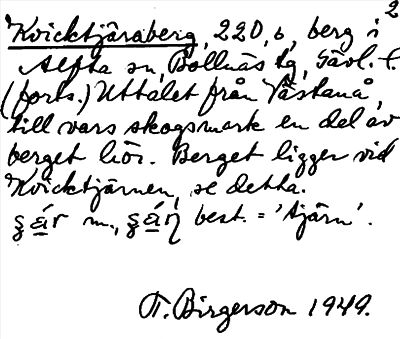 2
Kvicktjäraberg, 220, b, berg i
Alfta sn, Bollnäs tg, Gävl. l.
(forts.) Uttalet från Västanå,
till vars skogsmark en del av
berget hör. Berget ligger vid
Kvicktjärnen, se detta.
best. = 'tjärn'.
T. Birgerson 1949.